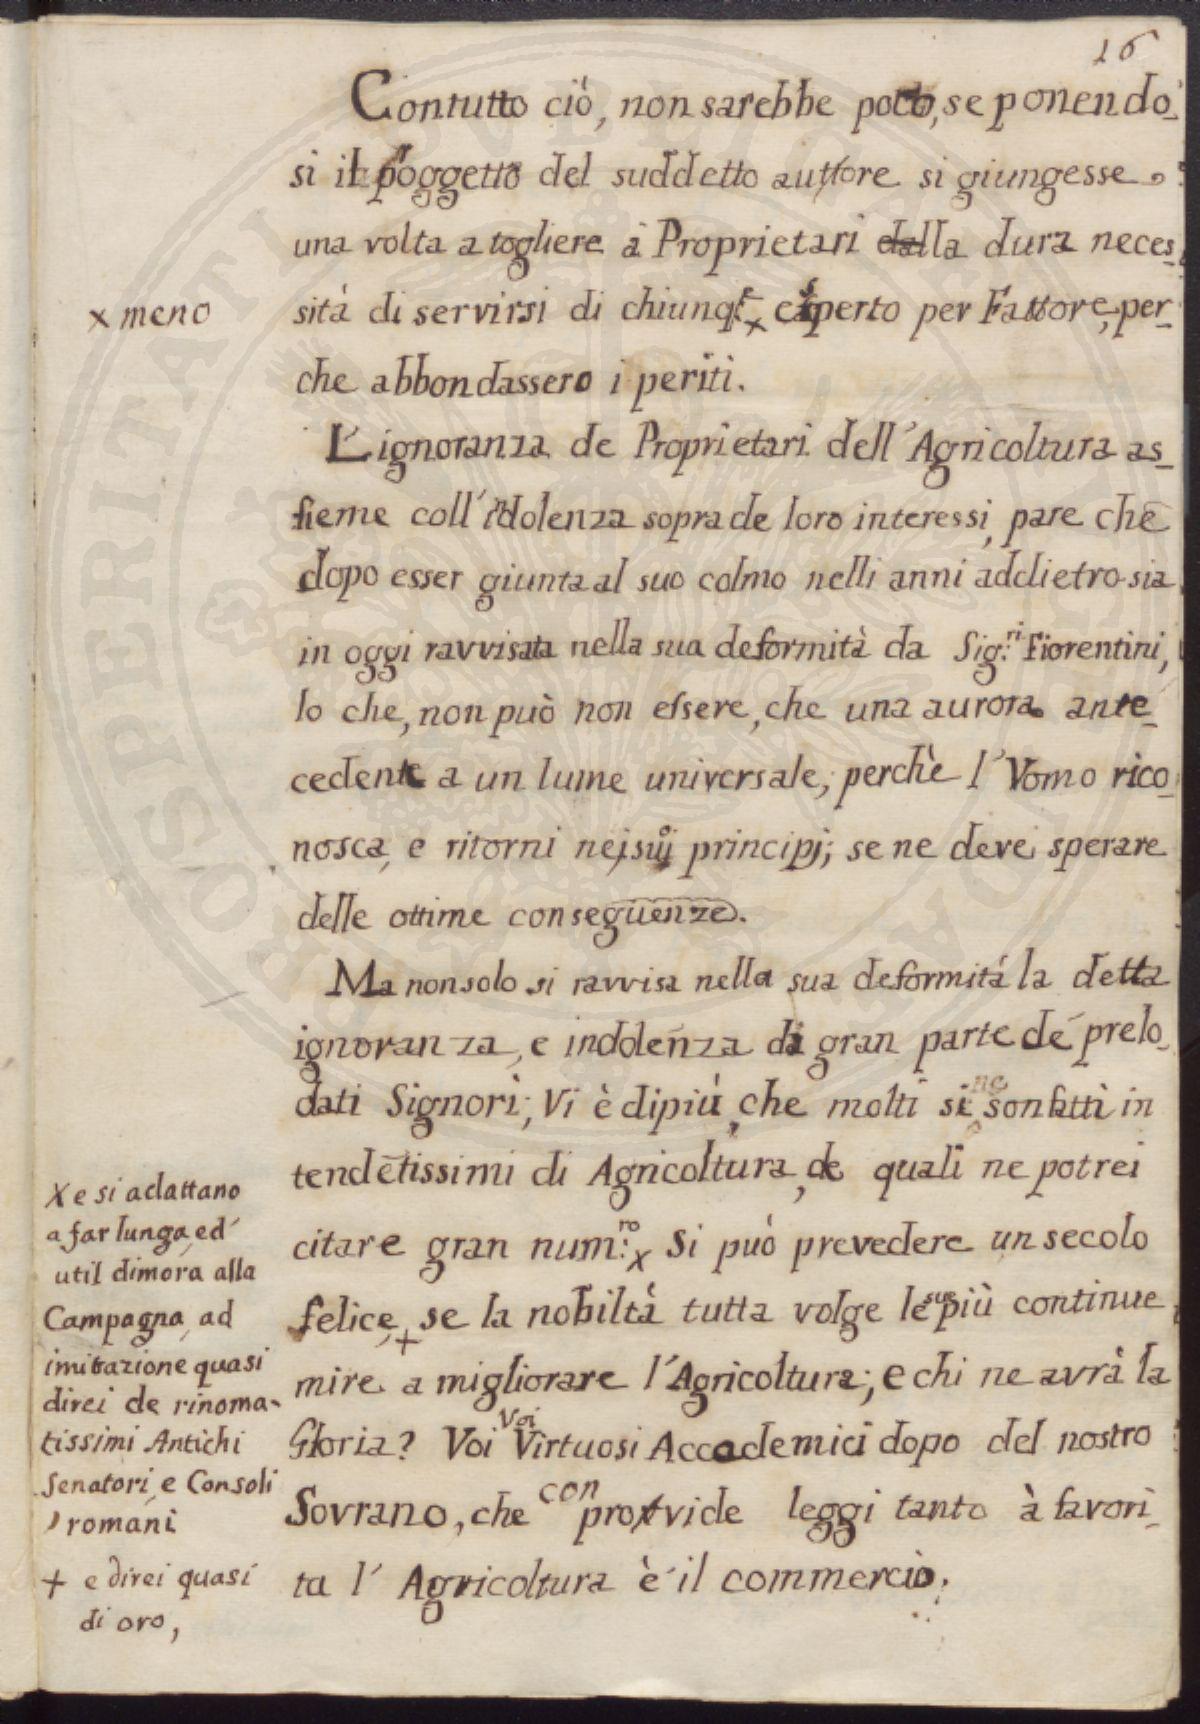 16
Contutto ciò, non sarebbe poco, se ponendo-
si il poggetto del suddetto auttore si giungesse
una volta a togliere à Proprietari dalla dura neces-
x meno
sità di servirsi di chiunq.e x esperto per Fattore, per-
che abbondassero i periti.
L'ignoranza de Proprietari dell'Agricoltura as-
sieme coll'indolenza sopra de loro interessi, pare che
dopo esser giunta al suo colmo nelli anni addietro sia
in oggi ravvisata nella sua deformità da Sig.ri Fiorentini,
lo che, non può non essere, che una aurora ante-
cedente a un lume universale, perchè l'Vomo rico-
nosca, e ritorni nei suoi principj; se ne deve sperare
delle ottime conseguenze.
Ma non solo si ravvisa nella sua deformitá la detta
ignoranza, e indolenza di gran parte de' prelo-
dati Signori; Vi è dipiù, che molti si ne son fatti in
tendetissimi di Agricoltura, de quali ne potrei
citare gran num:ro x Si può prevedere un secolo
felice, + se la nobiltà tutta volge le sue più continue
mire a migliorare l'Agricoltura; e chi ne avrà la
Gloria? Voi Voi Virtuosi Accademici dopo del nostro
Sovrano, che con provide leggi tanto à favori-
ta l'Agricoltura è il commercio.
X e si adattano
a far lunga, ed
util dimora alla
Campagna, ad
imitazione quasi
direi de rinoma-
tissimi Antichi
Senatori, e Consoli
romani
+ e direi quasi
di oro,
PROSPERITATI PVBLICAE AVGENDAE